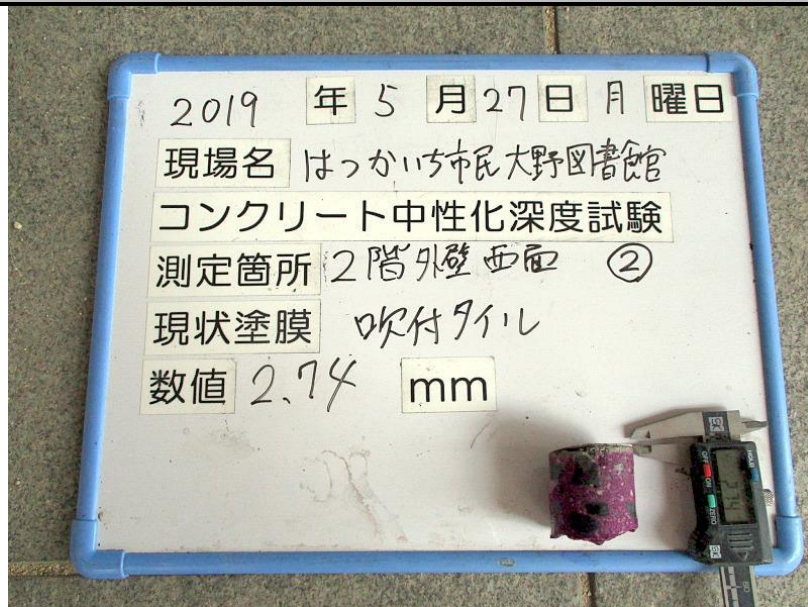 2019 年 5 月 27 日 月 曜日
現場名 はつかいち市民大野図書館
コンクリート中性化深度試験
測定箇所 2階外壁西面 ②
現状塗膜 吹付タイル
数値 2.74 mm
OFF
ON
ZERO
2.74